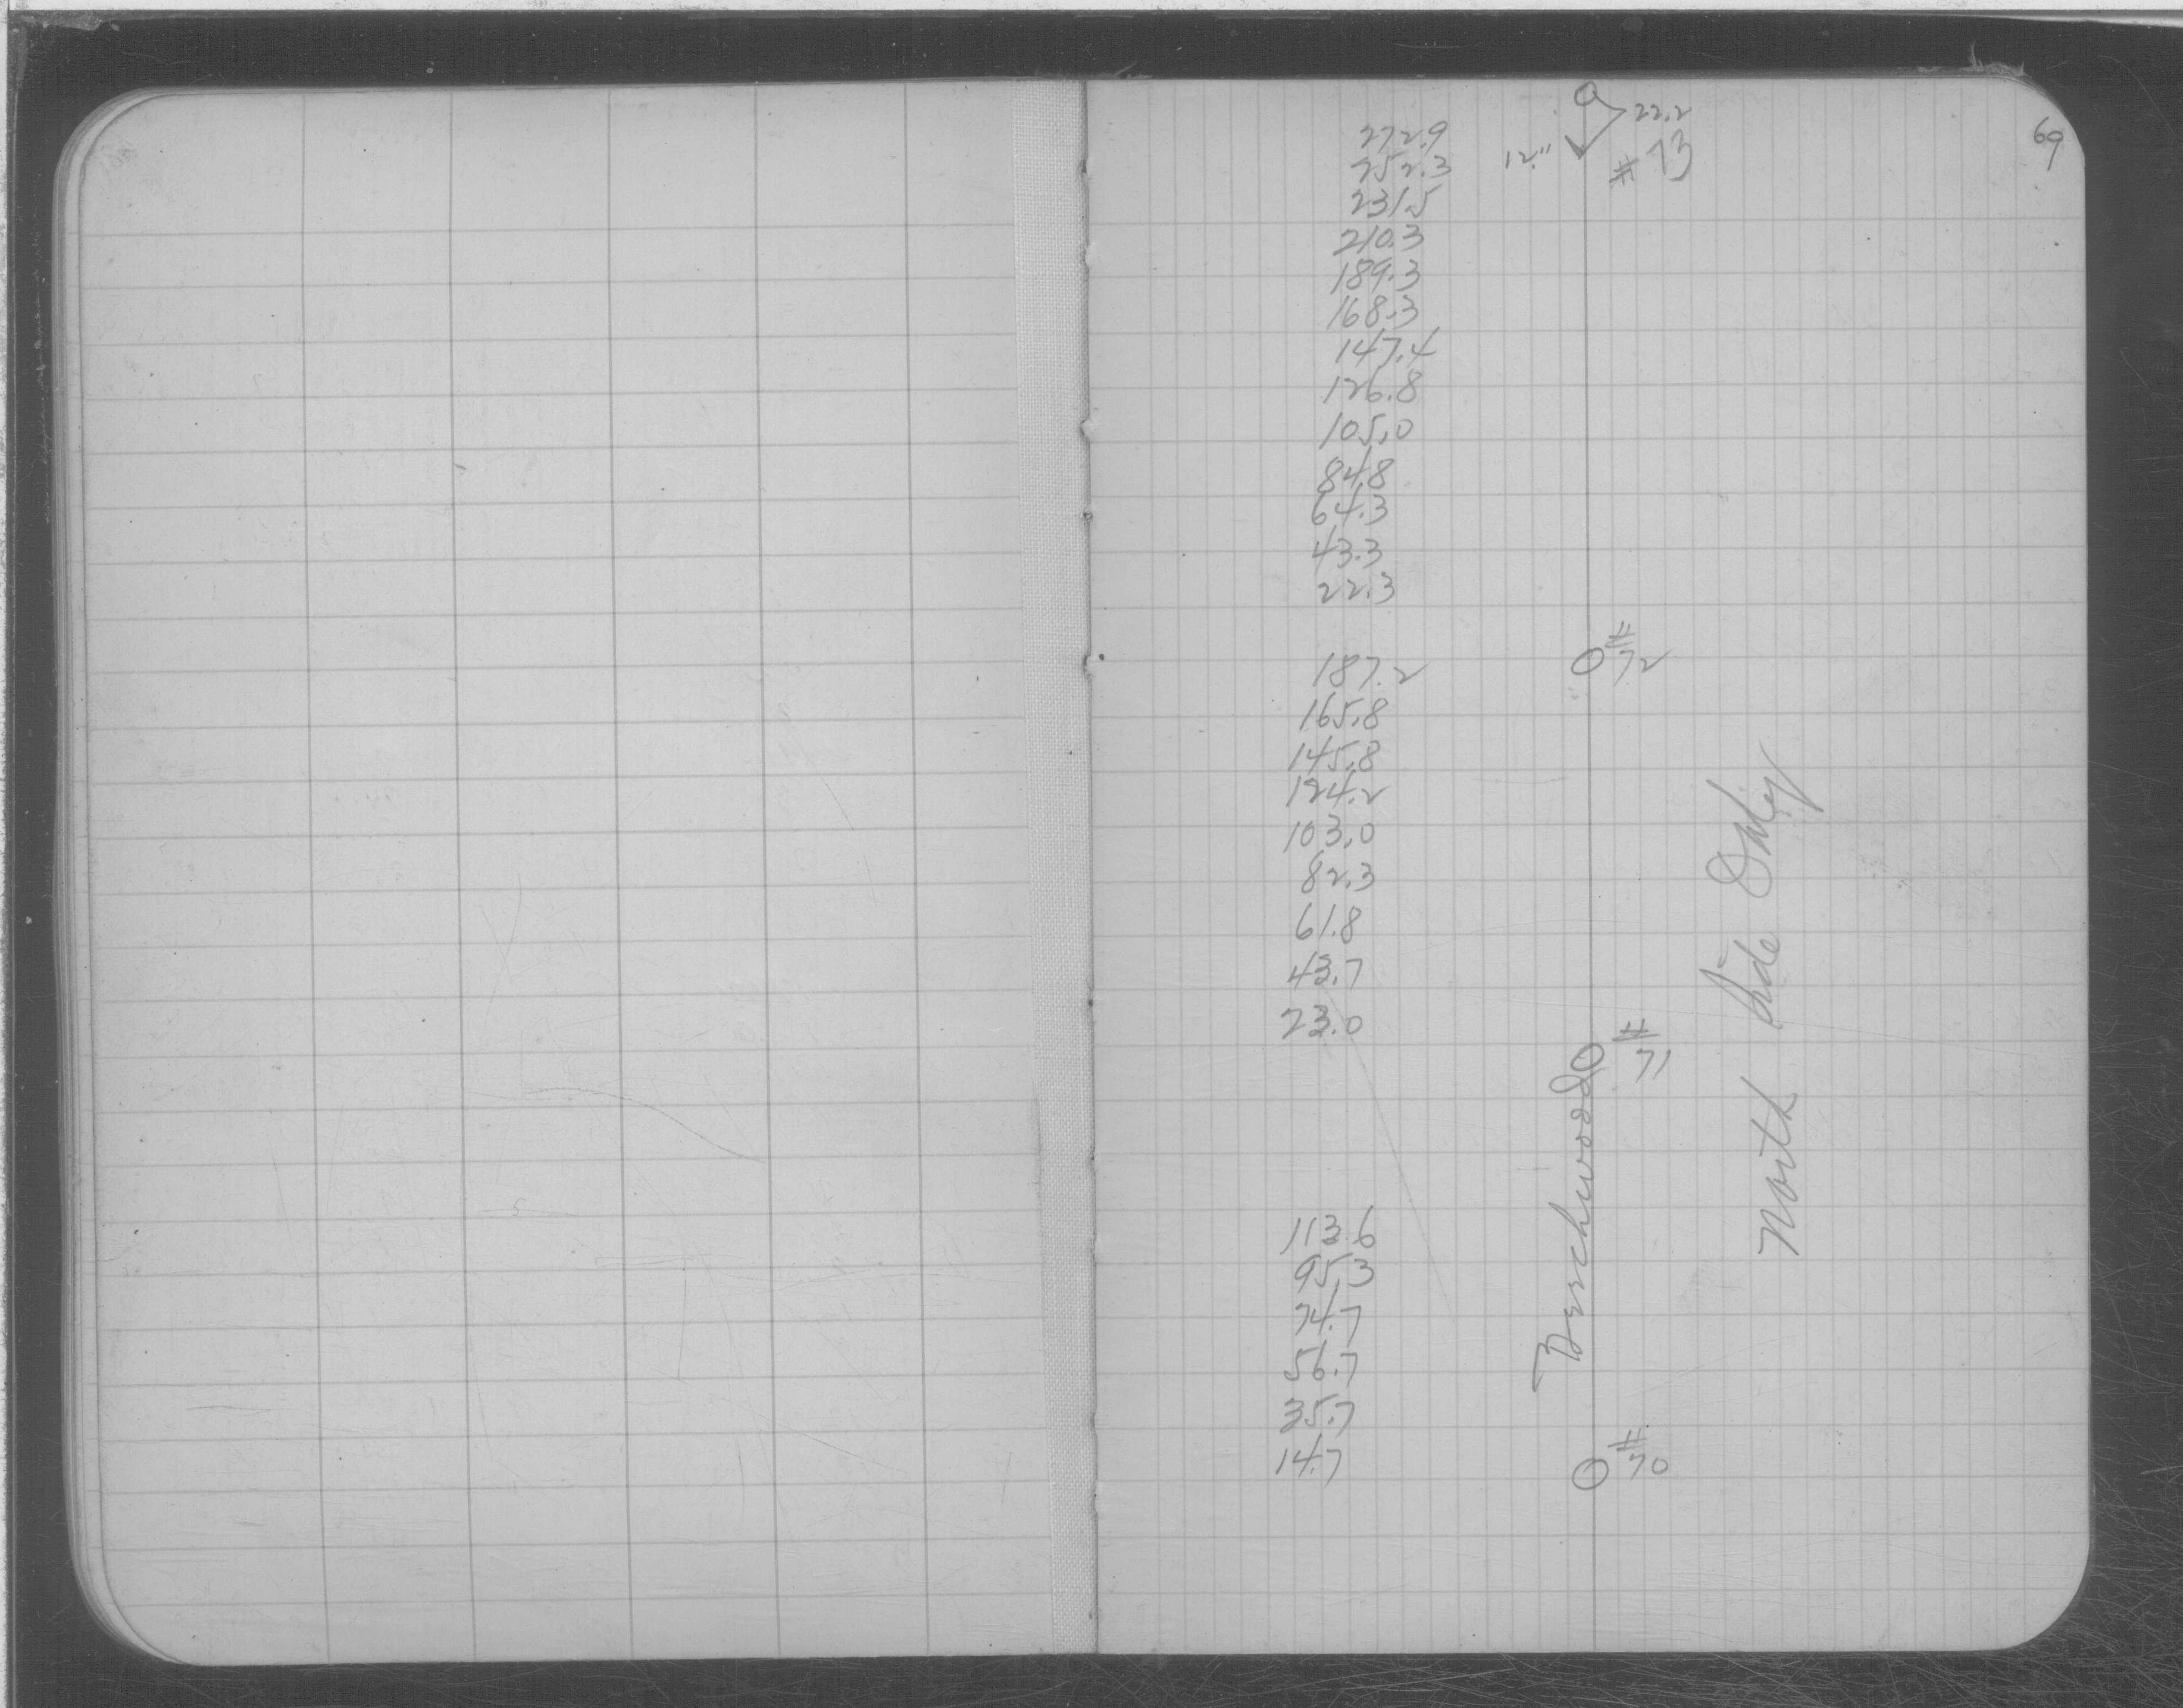 69
22.2
12"
#73
272.9
252.3
231.5
210.3
189.3
168.3
147.4
126.8
105.0
84.8
64.3
43.3
22.3
#72
187.2
165.8
145.8
124.2
103.0
82.3
61.8
43.7
23.0
#71
113.6
95.3
74.7
56.7
35.7
14.7
#70
North Side Only